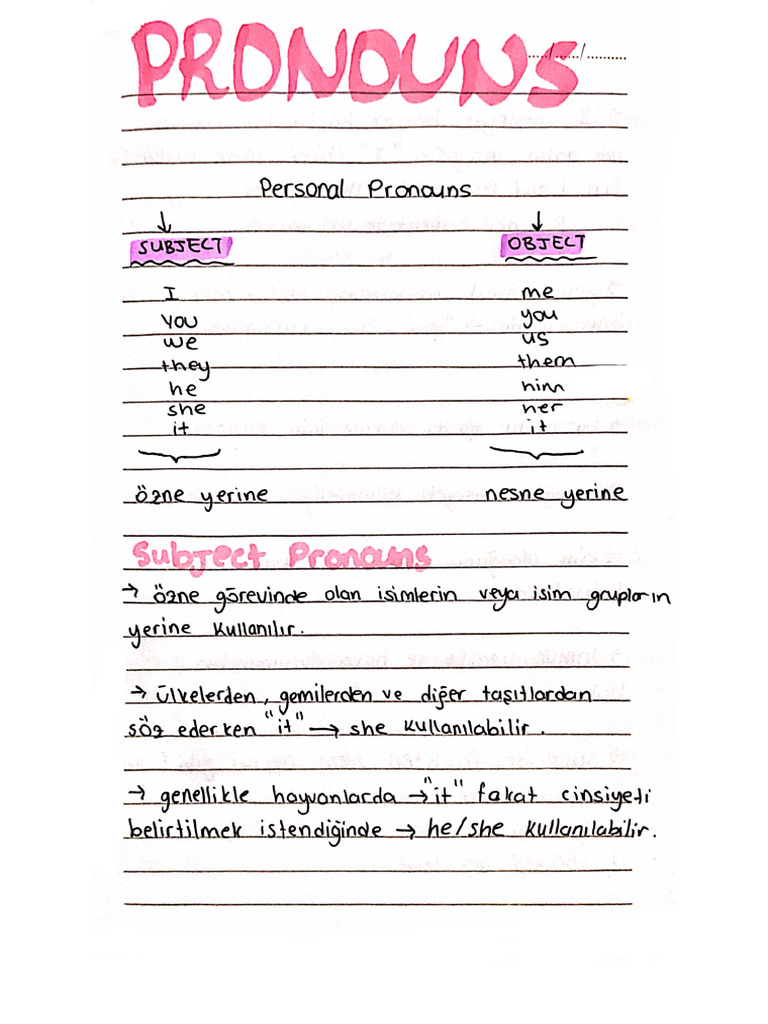 PRONOUNS
...../....../..........
Personal Pronouns
↓ ↓
SUBJECT OBJECT
I me
you you
we us
they them
he him
she her
it it
özne yerine nesne yerine
Subject Pronouns
→ özne görevinde olan isimlerin veya isim grupların
yerine kullanılır.
→ ülkelerden, gemilerden ve diğer taşıtlardan
söz ederken "it" → she kullanılabilir.
→ genellikle hayvanlarda → "it" fakat cinsiyeti
belirtilmek istendiğinde → he/she kullanılabilir.